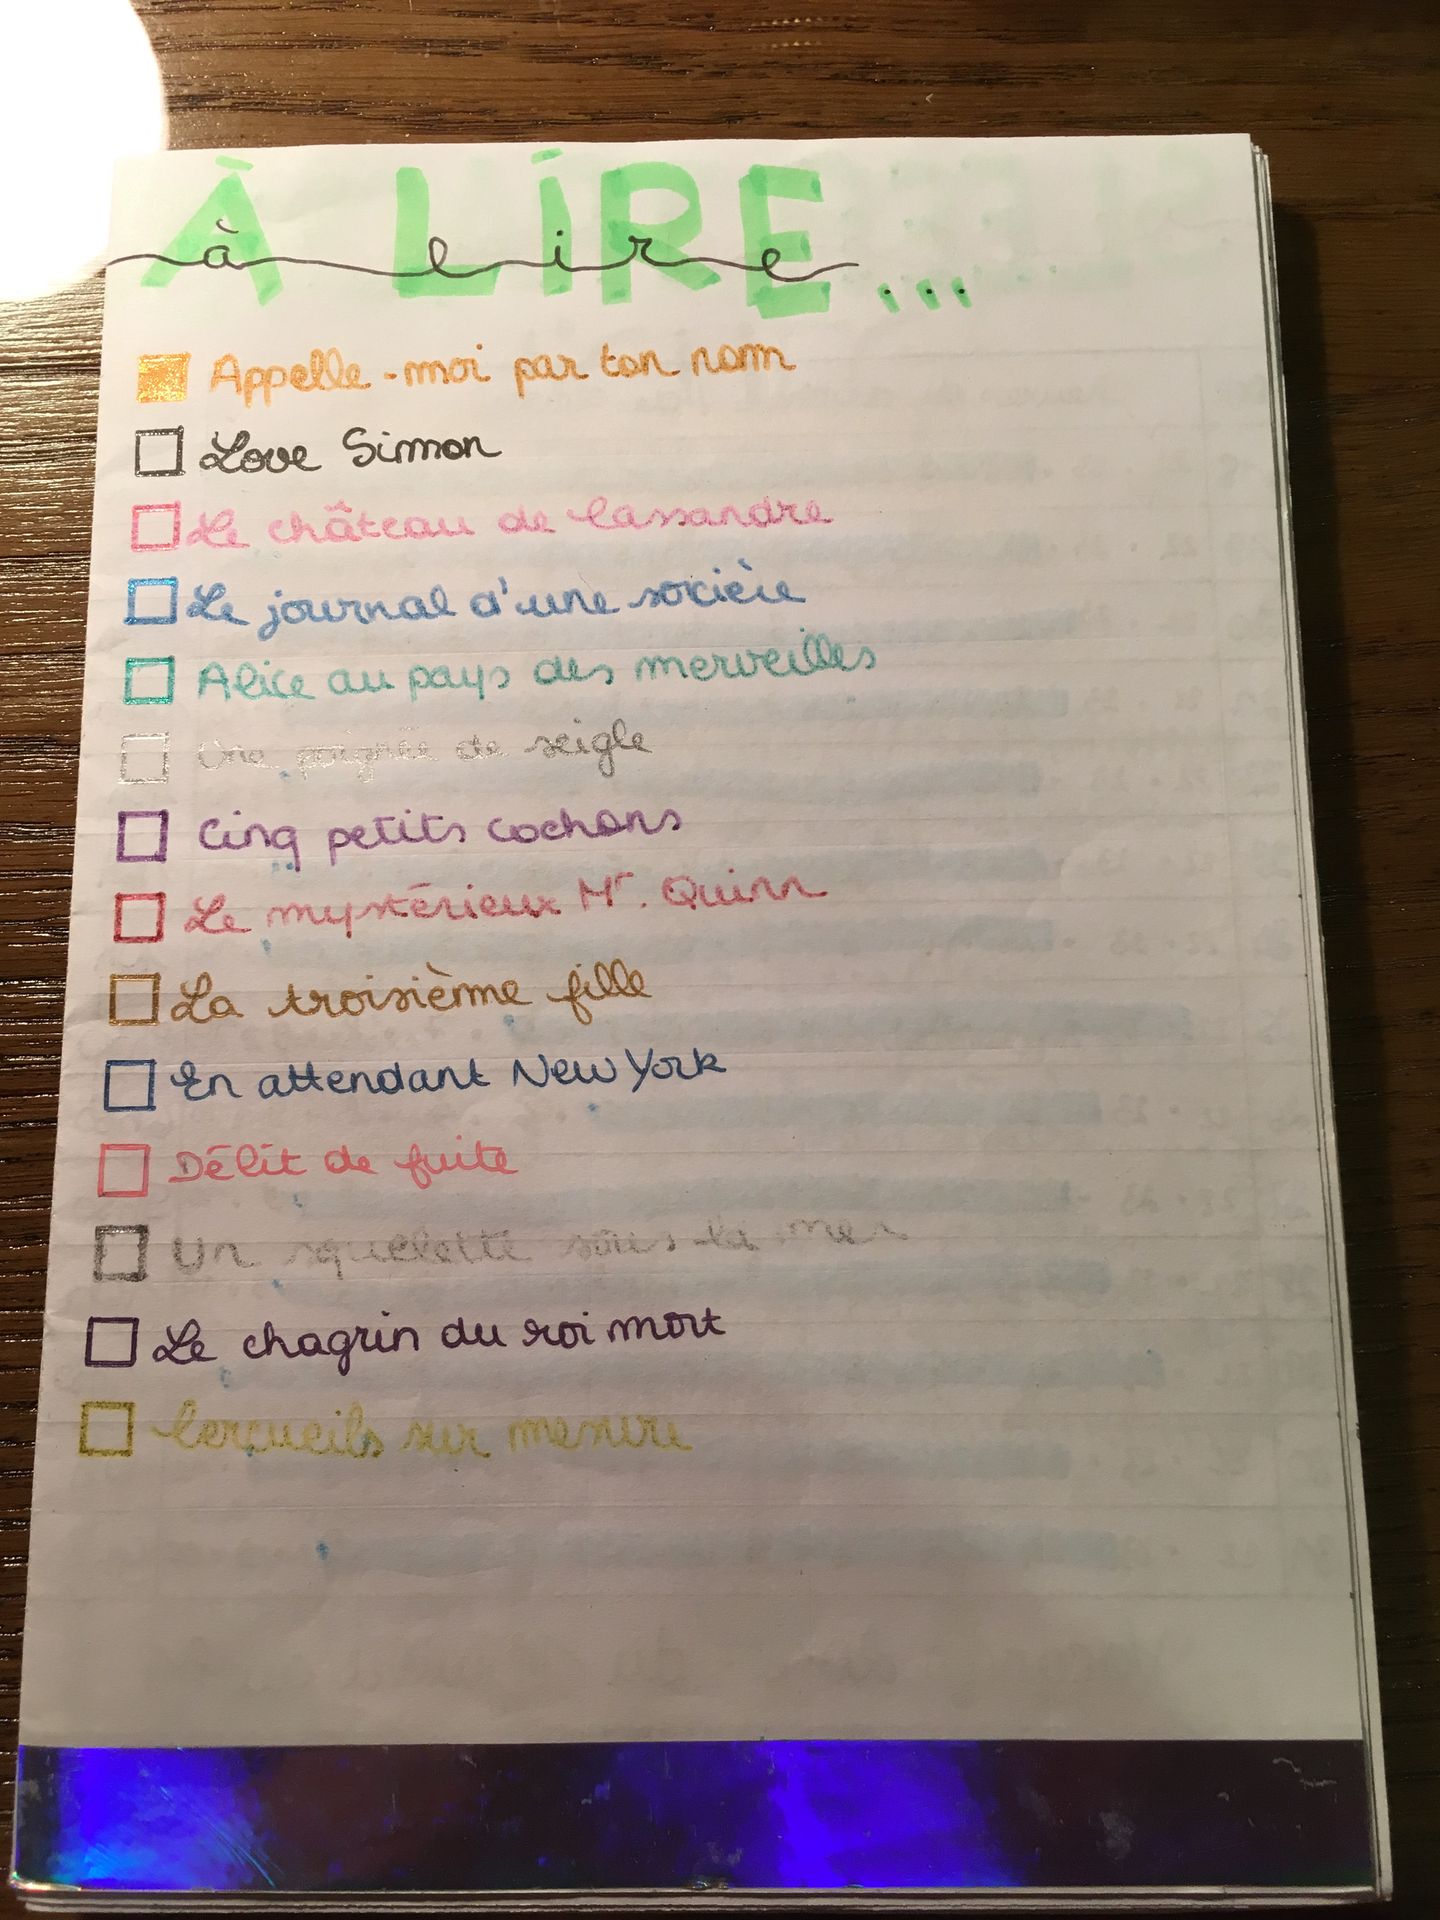 À LIRE...
à lire...
Appelle-moi par ton nom
Love Simon
Le château de Cassandre
Le journal d'une sorcière
Alice au pays des merveilles
Une poignée de seigle
Cinq petits cochons
Le mystérieux Mr. Quinn
La troisième fille
En attendant New York
Délit de fuite
Un squelette sous la mer
Le chagrin du roi mort
Cercueils sur mesure